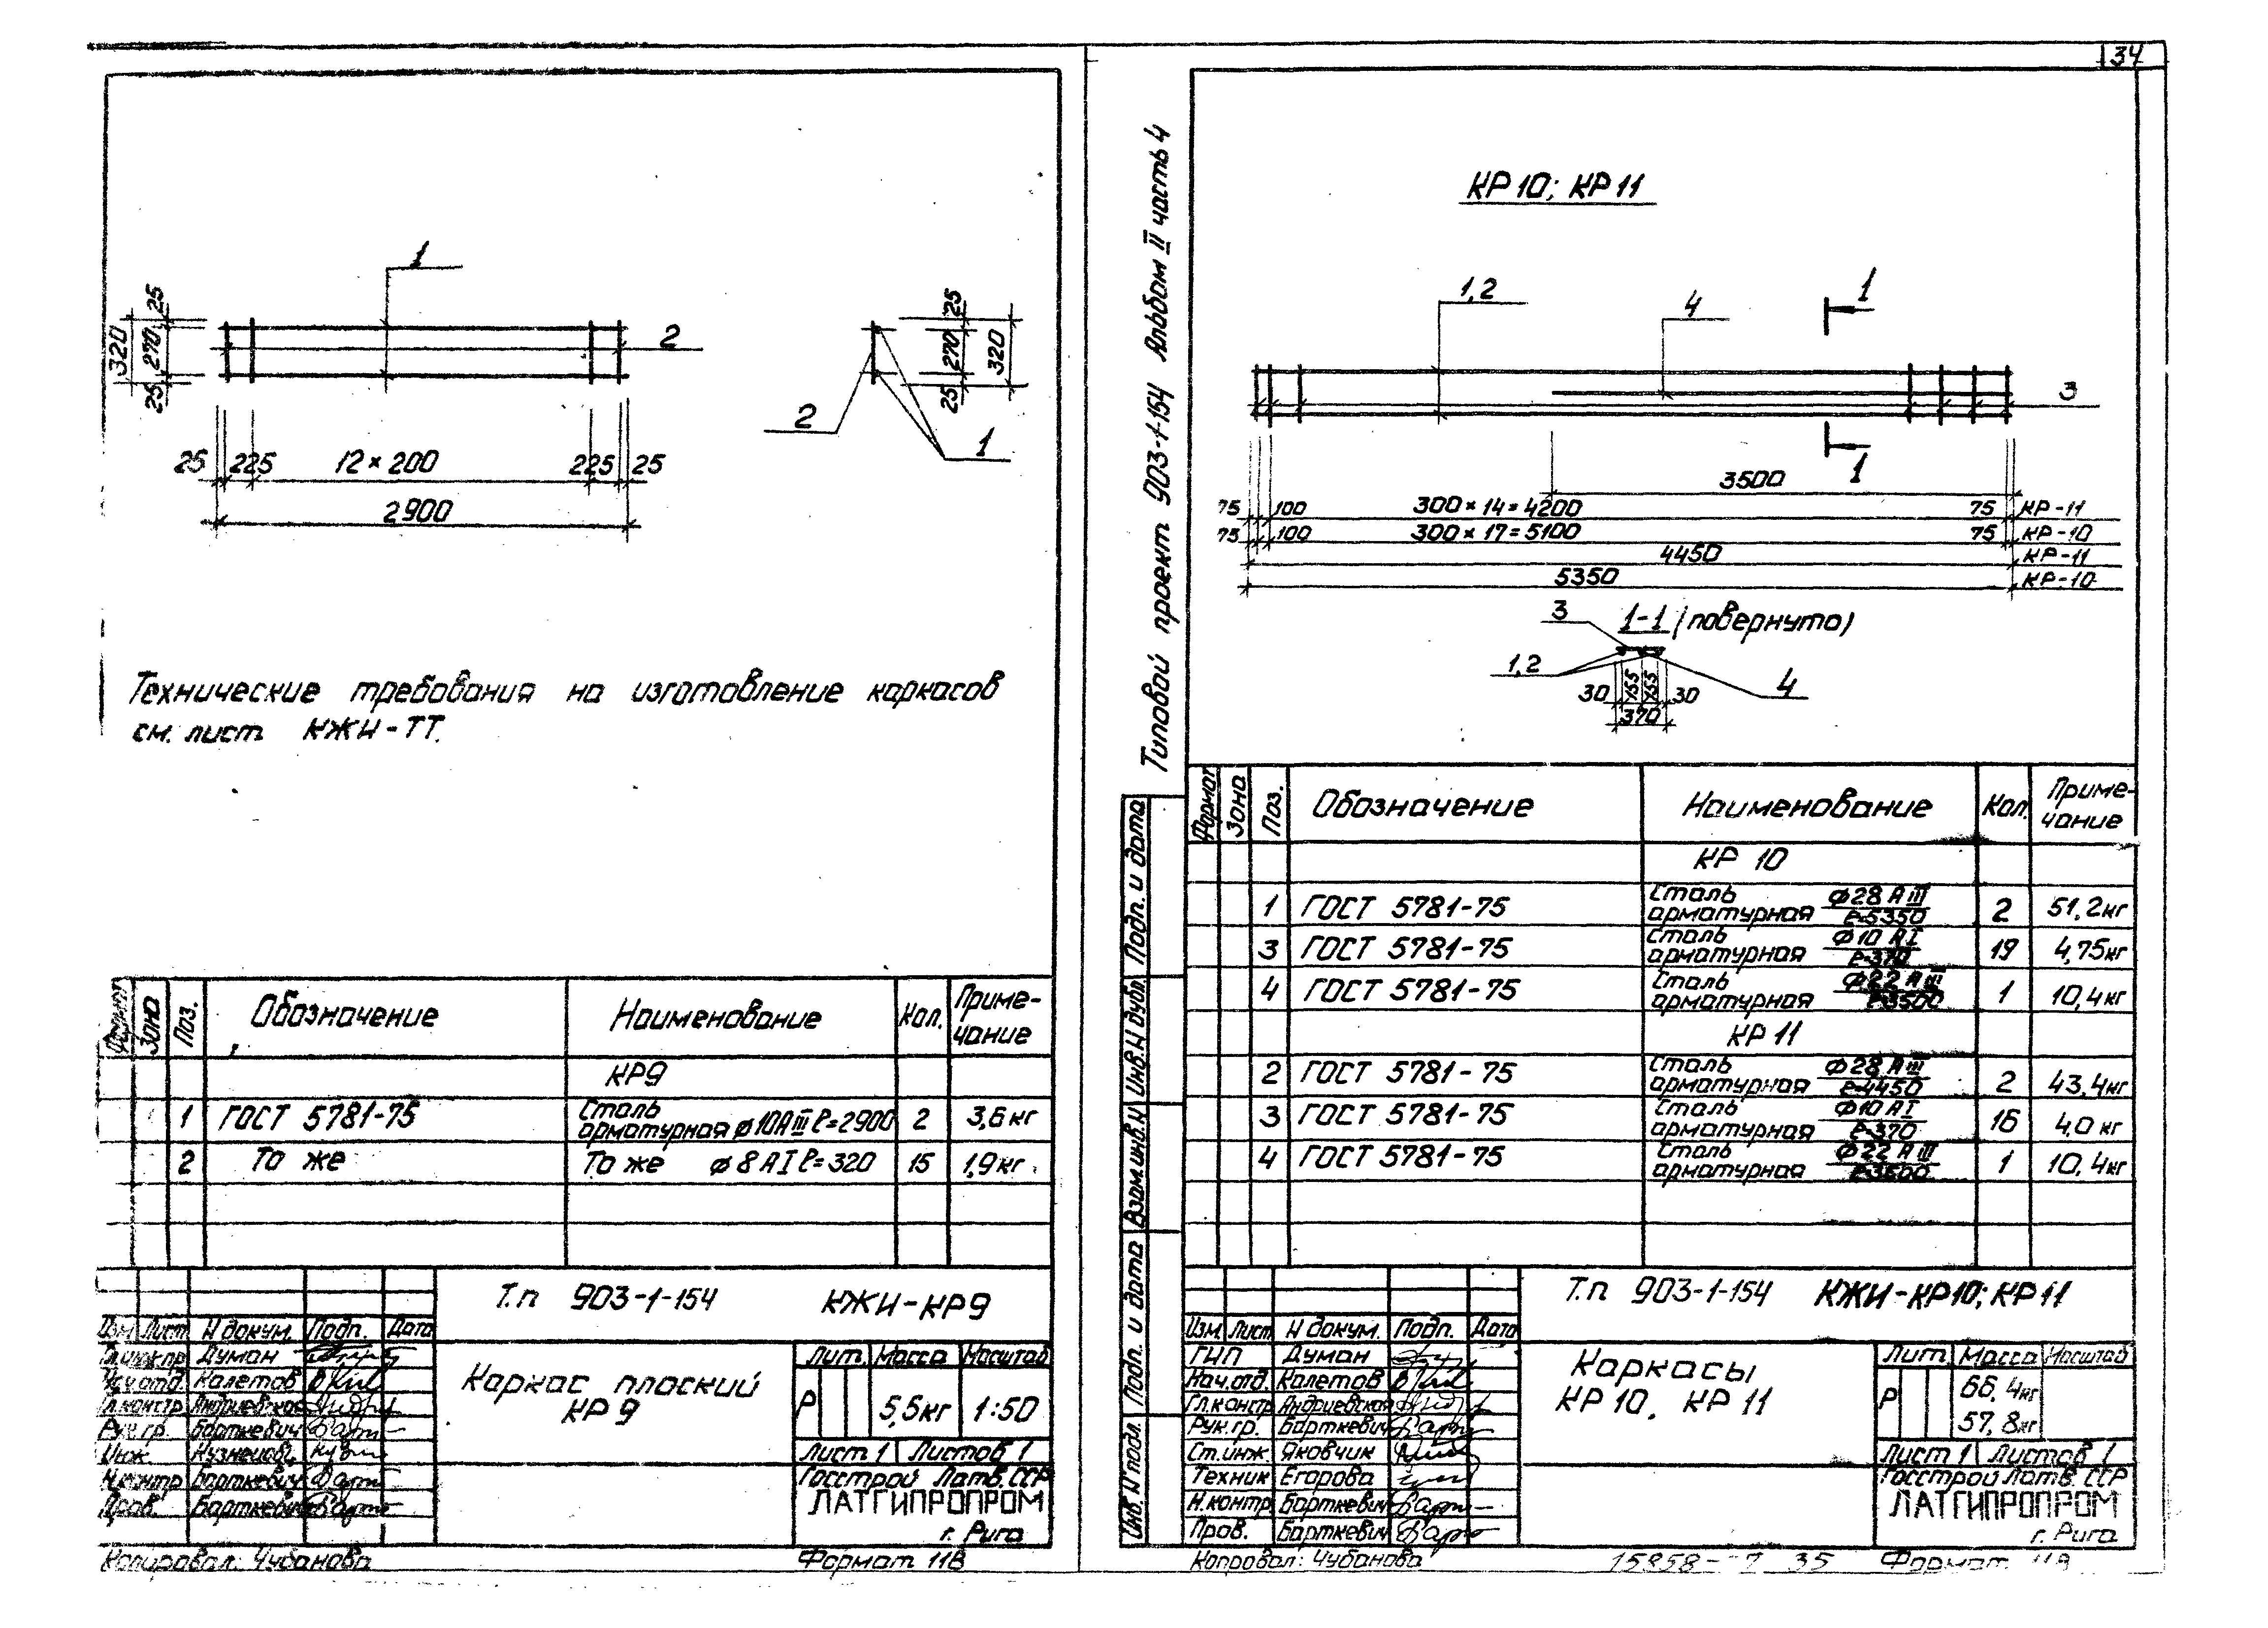 34
1
25
270
25
320
2
25
225
12×200
225
25
2900
25
270
25
320
2
1
Технические требования на изготовление каркасов
см. лист КЖИ-ТТ.
Формат
Зона
Поз.
Обозначение
Наименование
Кол.
Приме-
чание
КР9
1 ГОСТ 5781-75 Сталь арматурная ф10АIII ℓ=2900 2 3,6кг
2 То же То же ф8АI ℓ=320 15 1,9кг
Т.п 903-1-154 КЖИ-КР9
Изм. Лист N докум. Подп. Дата
Гл.инж.пр Думан
Нач.отд. Калетов
Гл.констр Андриевская
Рук.гр. Барткевич
Инж
Н.контр Барткевич
Пров. Барткевич
Каркас плоский
КР9
Лит. Масса Масштаб
Р 5,5кг 1:50
Лист 1 Листов 1
Госстрой Латв.ССР
ЛАТГИПРОПРОМ
г. Рига
Копировал: Чубанова
Формат 11В
Типовой проект 903-1-154 Альбом II часть 4
КР10; КР11
1,2
4
1
3
1
3500
75 100 300×14=4200 75 КР-11
75 100 300×17=5100 75 КР-10
4450 КР-11
5350 КР-10
3
1-1 (повернуто)
1,2
4
30 155 155 30
370
Формат
Зона
Поз.
Обозначение
Наименование
Кол.
Приме-
чание
КР 10
1 ГОСТ 5781-75 Сталь арматурная ф28АIII ℓ=5350 2 51,2кг
3 ГОСТ 5781-75 Сталь арматурная ф10АI ℓ=370 19 4,75кг
4 ГОСТ 5781-75 Сталь арматурная ф22АIII ℓ=3500 1 10,4кг
КР 11
2 ГОСТ 5781-75 Сталь арматурная ф28АIII ℓ=4450 2 43,4кг
3 ГОСТ 5781-75 Сталь арматурная ф10АI ℓ=370 16 4,0кг
4 ГОСТ 5781-75 Сталь арматурная ф22АIII ℓ=3500 1 10,4кг
Подп. и дата
Инв.N дубл.
Взам.инв.N
Подп. и дата
Инв.N подл.
Т.п 903-1-154 КЖИ-КР10; КР11
Изм. Лист N докум. Подп. Дата
ГИП Думан
Нач.отд. Калетов
Гл.констр Андриевская
Рук.гр. Барткевич
Ст.инж. Яковчик
Техник Егорова
Н.контр Барткевич
Пров. Барткевич
Каркасы
КР10, КР11
Лит. Масса Масштаб
Р 66,4кг
57,8кг
Лист 1 Листов 1
Госстрой Латв.ССР
ЛАТГИПРОПРОМ
г. Рига
Копровал: Чубанова
35
Формат